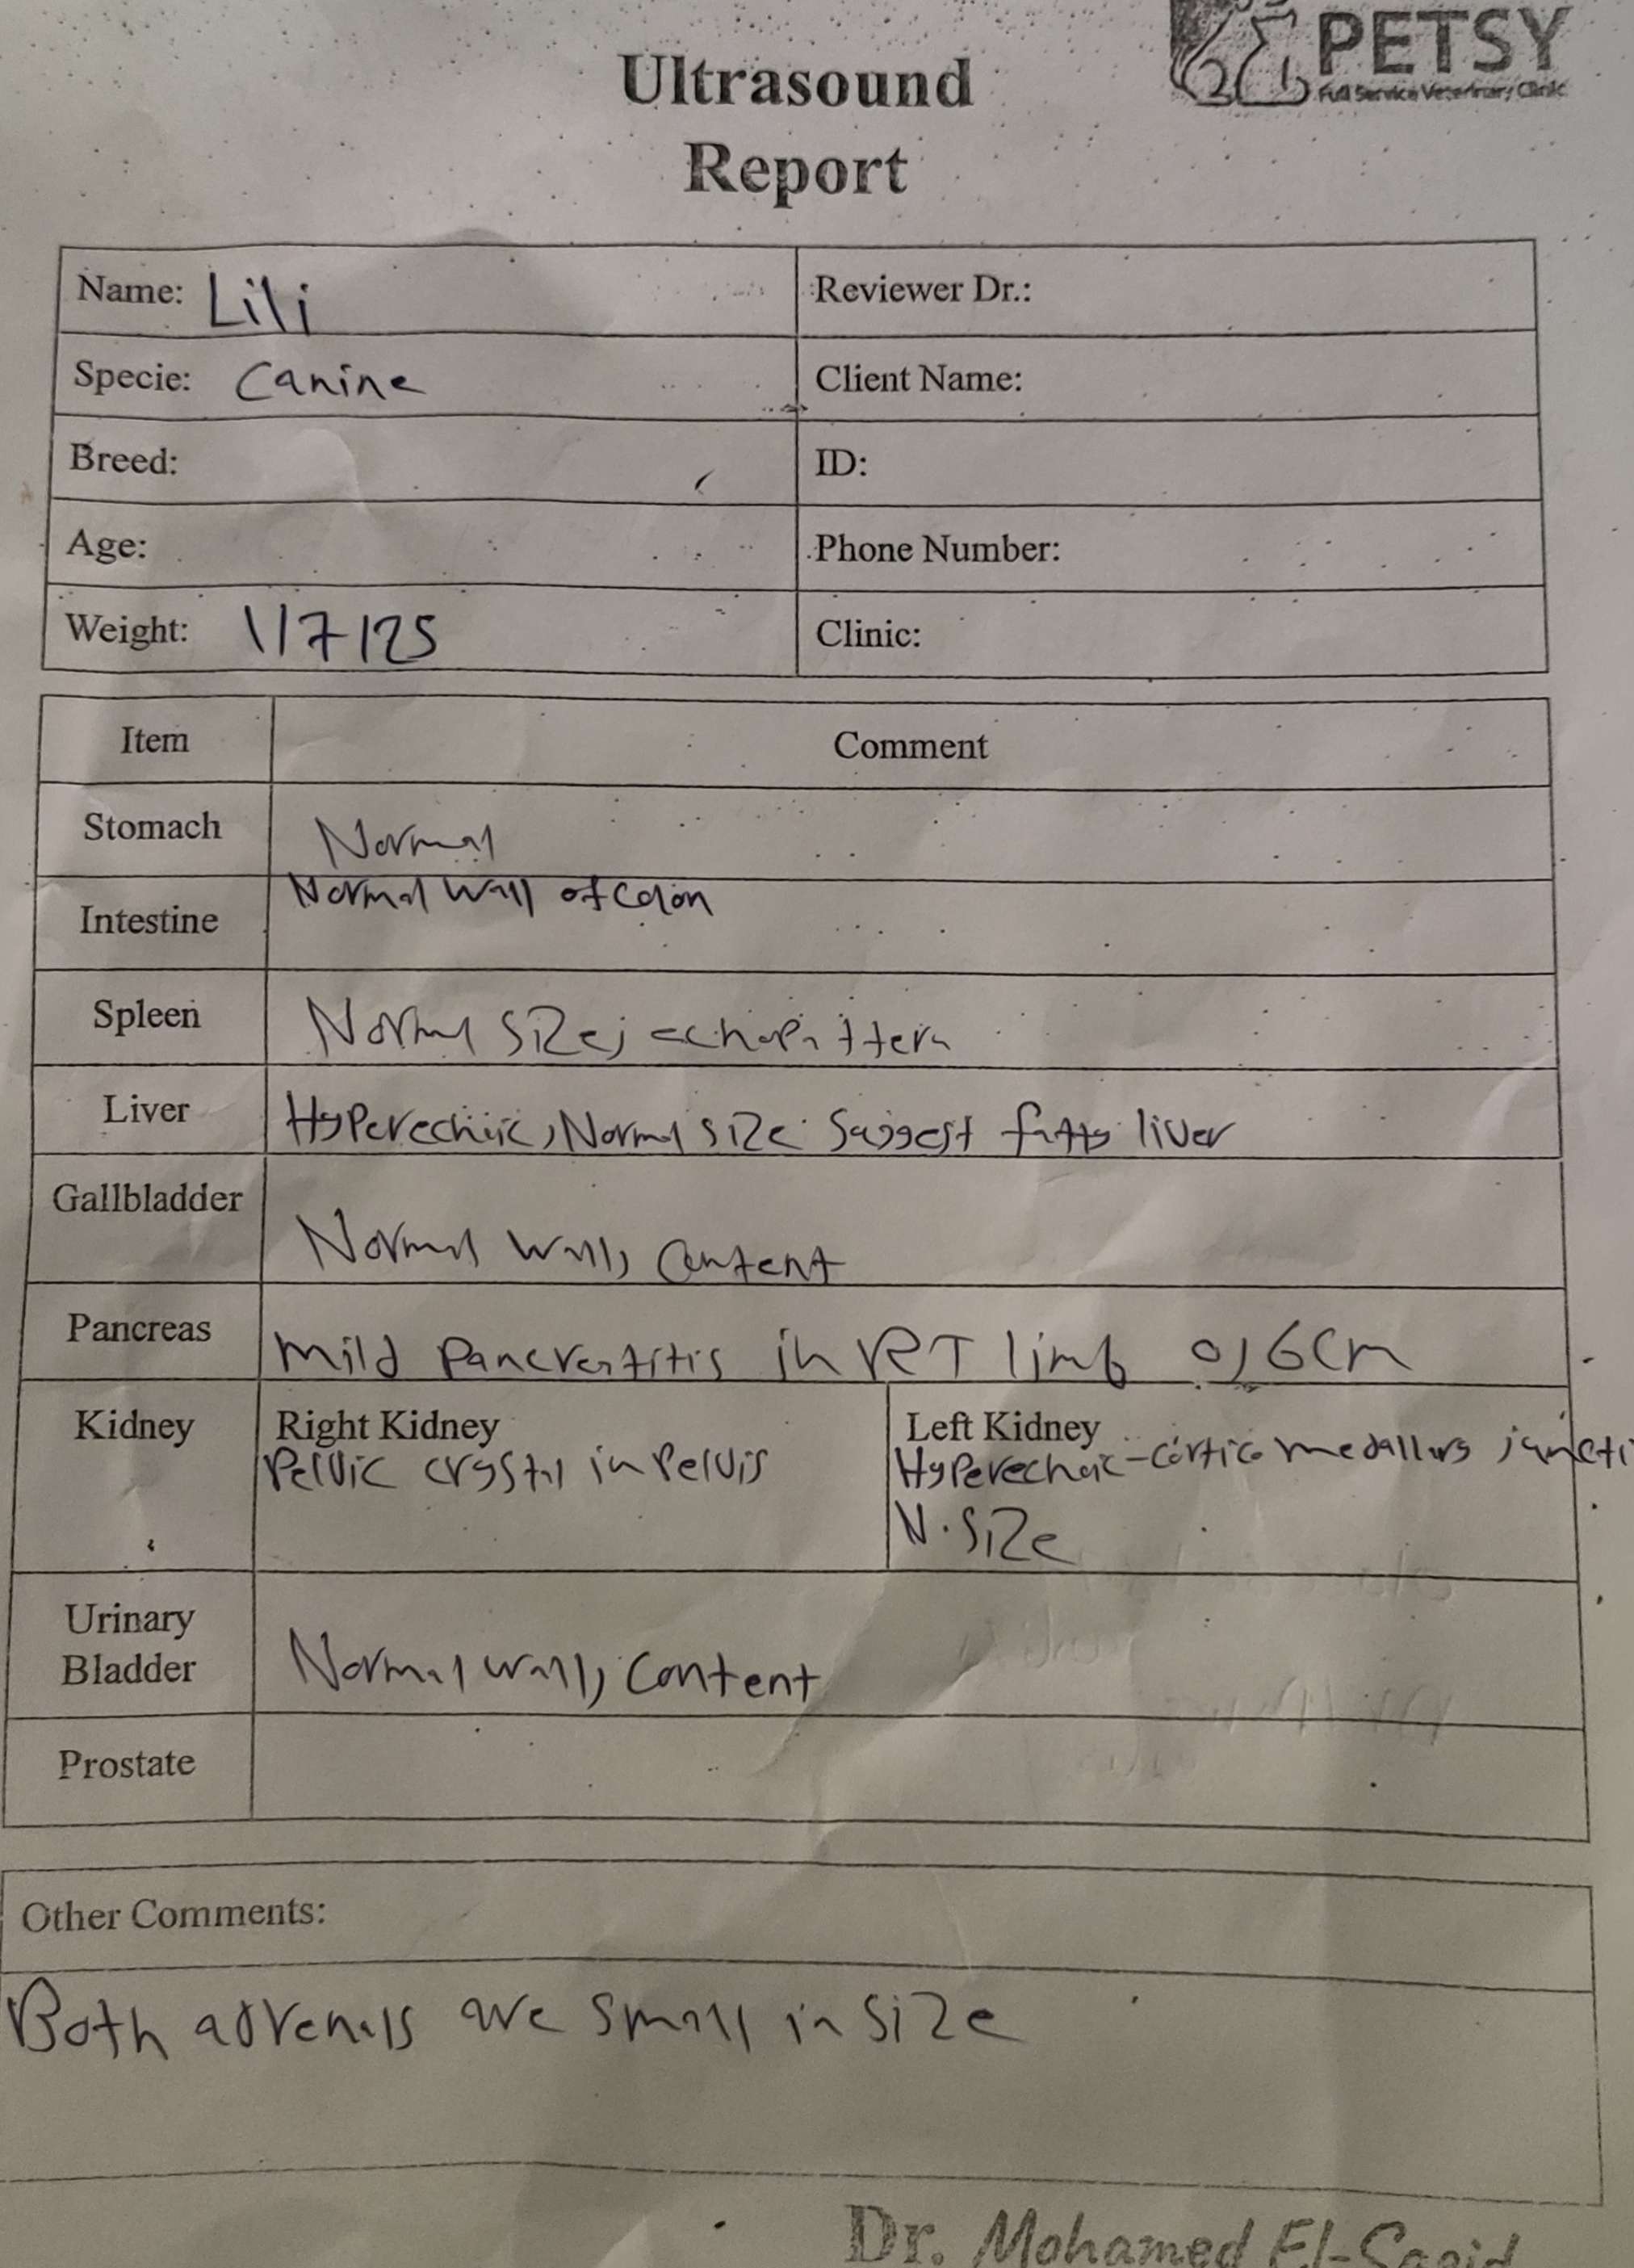 PETSY
Full Service Veterinary Clinic
Ultrasound
Report
Name: Lili
Reviewer Dr.:
Specie: Canine
Client Name:
Breed:
ID:
Age:
Phone Number:
Weight: 1/7/25
Clinic:
Item
Comment
Stomach
Normal
Intestine
Normal wall of colon
Spleen
Normal size, echopattern
Liver
Hyperechoic, Normal size suggest fatty liver
Gallbladder
Normal wall, content
Pancreas
mild pancreatitis in RT limb 0,6cm
Kidney
Right Kidney
Pelvic crystal in Pelvis
Left Kidney
Hyperechoic-cortico medallary juncti
N.size
Urinary
Bladder
Normal wall, content
Prostate
Other Comments:
Both adrenals are small in size
Dr. Mohamed El-Saeid